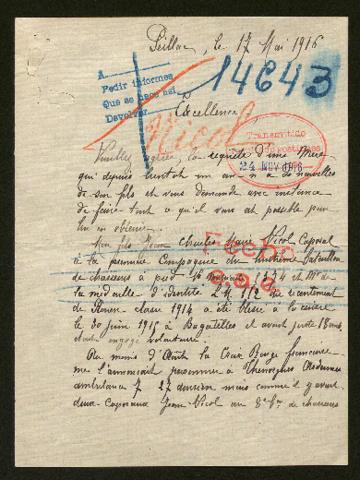 Peillac, le 17 Mai 1916
A
Pedir informes
Que se hace así
Devolver
14643
Excellence
Nicol
Transmitido
24 NOV 1916
Veuillez agréer, la requête d'une Mère
qui depuis bientôt un an n'a de nouvelles
de son fils et vous demande avec instance
de faire tout ce qu'il vous est possible pour
en obtenir.
Mon fils Jean Charles Marie Nicol Caporal
à la première Compagnie du huitième Bataillon
de chasseurs à pied
la médaille d'identité du recrutement
de classe 1914 a été blessé à la cuisse
le 30 juin 1915 à Bagatelles il avait 18 ans,
étant engagé volontaire.
Au mois d'Août la Croix Rouge
me l'annonçait prisonnier à
ambulance 7 27 dernière mais comme il y avait
deux caporaux Jean Nicol au 8e Bon de chasseurs